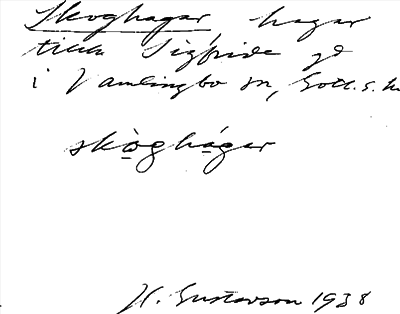 Skoghagar, hagar
tillh Sigfride gd
i Vamlingbo sn, Gotl. s.
skòghágar
H. Gustavson 1938